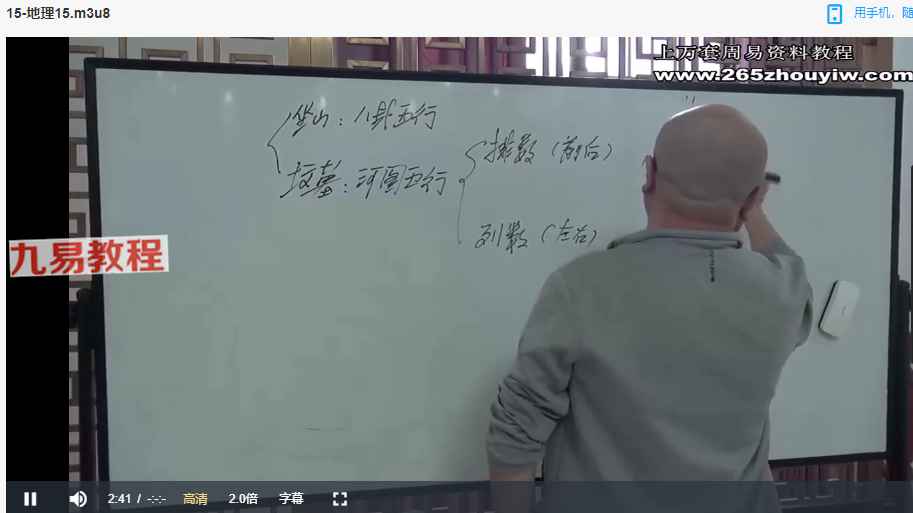 15-地理15.m3u8
用手机，随
上万套周易资料教程
www.265zhouyiw.com
坐山：八卦五行
排数（前后）
坟墓：河图五行
列数（左右）
九易教程
2:41 / -:-:-
高清
2.0倍
字幕